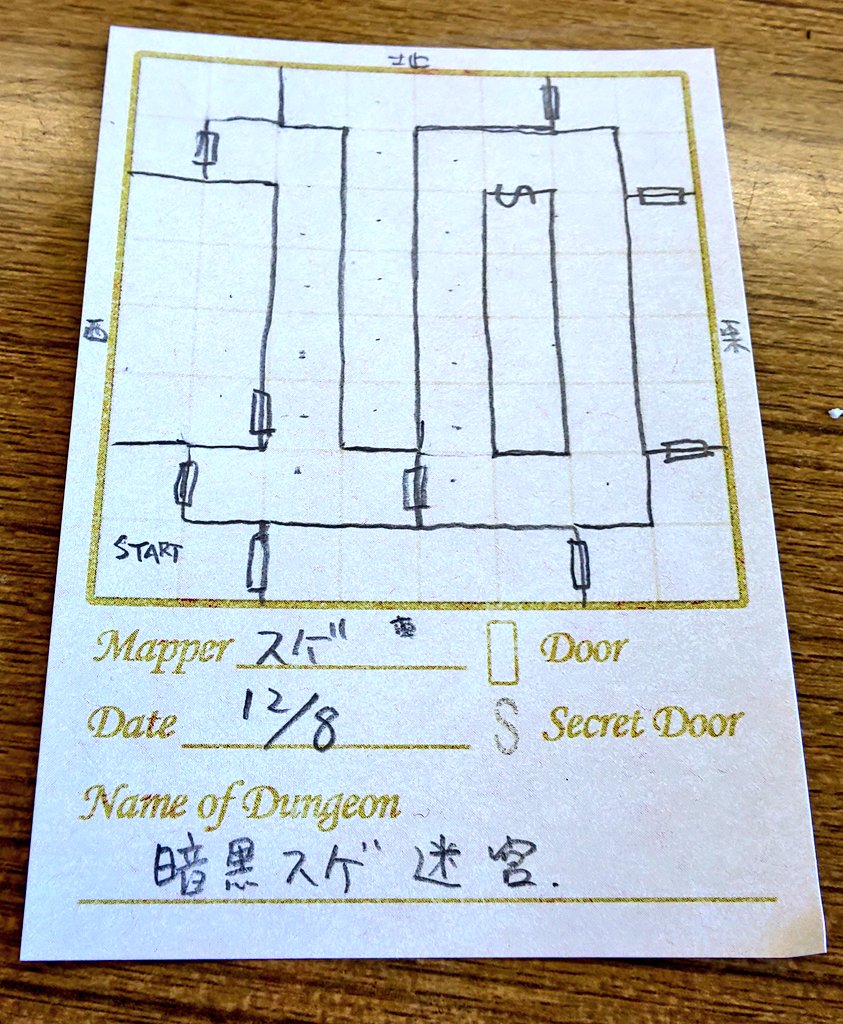 北
西
東
START
Mapper スゲ Door
Date 12/8 S Secret Door
Name of Dungeon
暗黒スゲ迷宮.